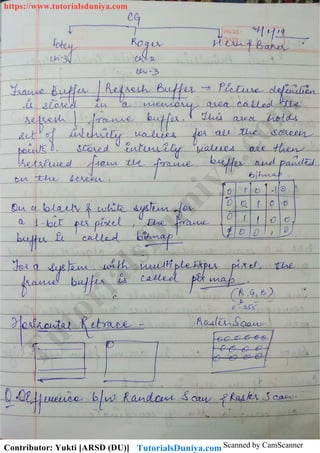 https://www.tutorialsduniya.com
CG
7/1/19
Foley Roger Hern & Baker
ch-3 ch-2
ch-3
Frame Buffer / Refresh Buffer → Picture definition
is stored in a memory area called the
refresh / frame buffer. This area holds
set of intensity values for all the screen
points. Stored intensity values are then
retrieved from the frame buffer and painted
on the screen.
Bitmap
On a black & white system for
a 1-bit per pixel, the frame
buffer is called bitmap.
0 1 0 1 0
0 0 1 0 0
0 1 1 0 0
1 0 0 1 0
For a system with multiple bits per pixel, the
frame buffer is called pixmap
(R, G, B)
0-255
Horizontal Retrace - Raster Scan
Q. Difference b/w Random Scan & Raster Scan.
Contributor: Yukti [ARSD (DU)] TutorialsDuniya.com Scanned by CamScanner